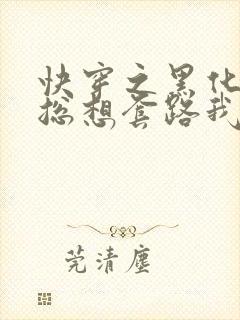 快穿之黑化
总想套路我
莞清尘